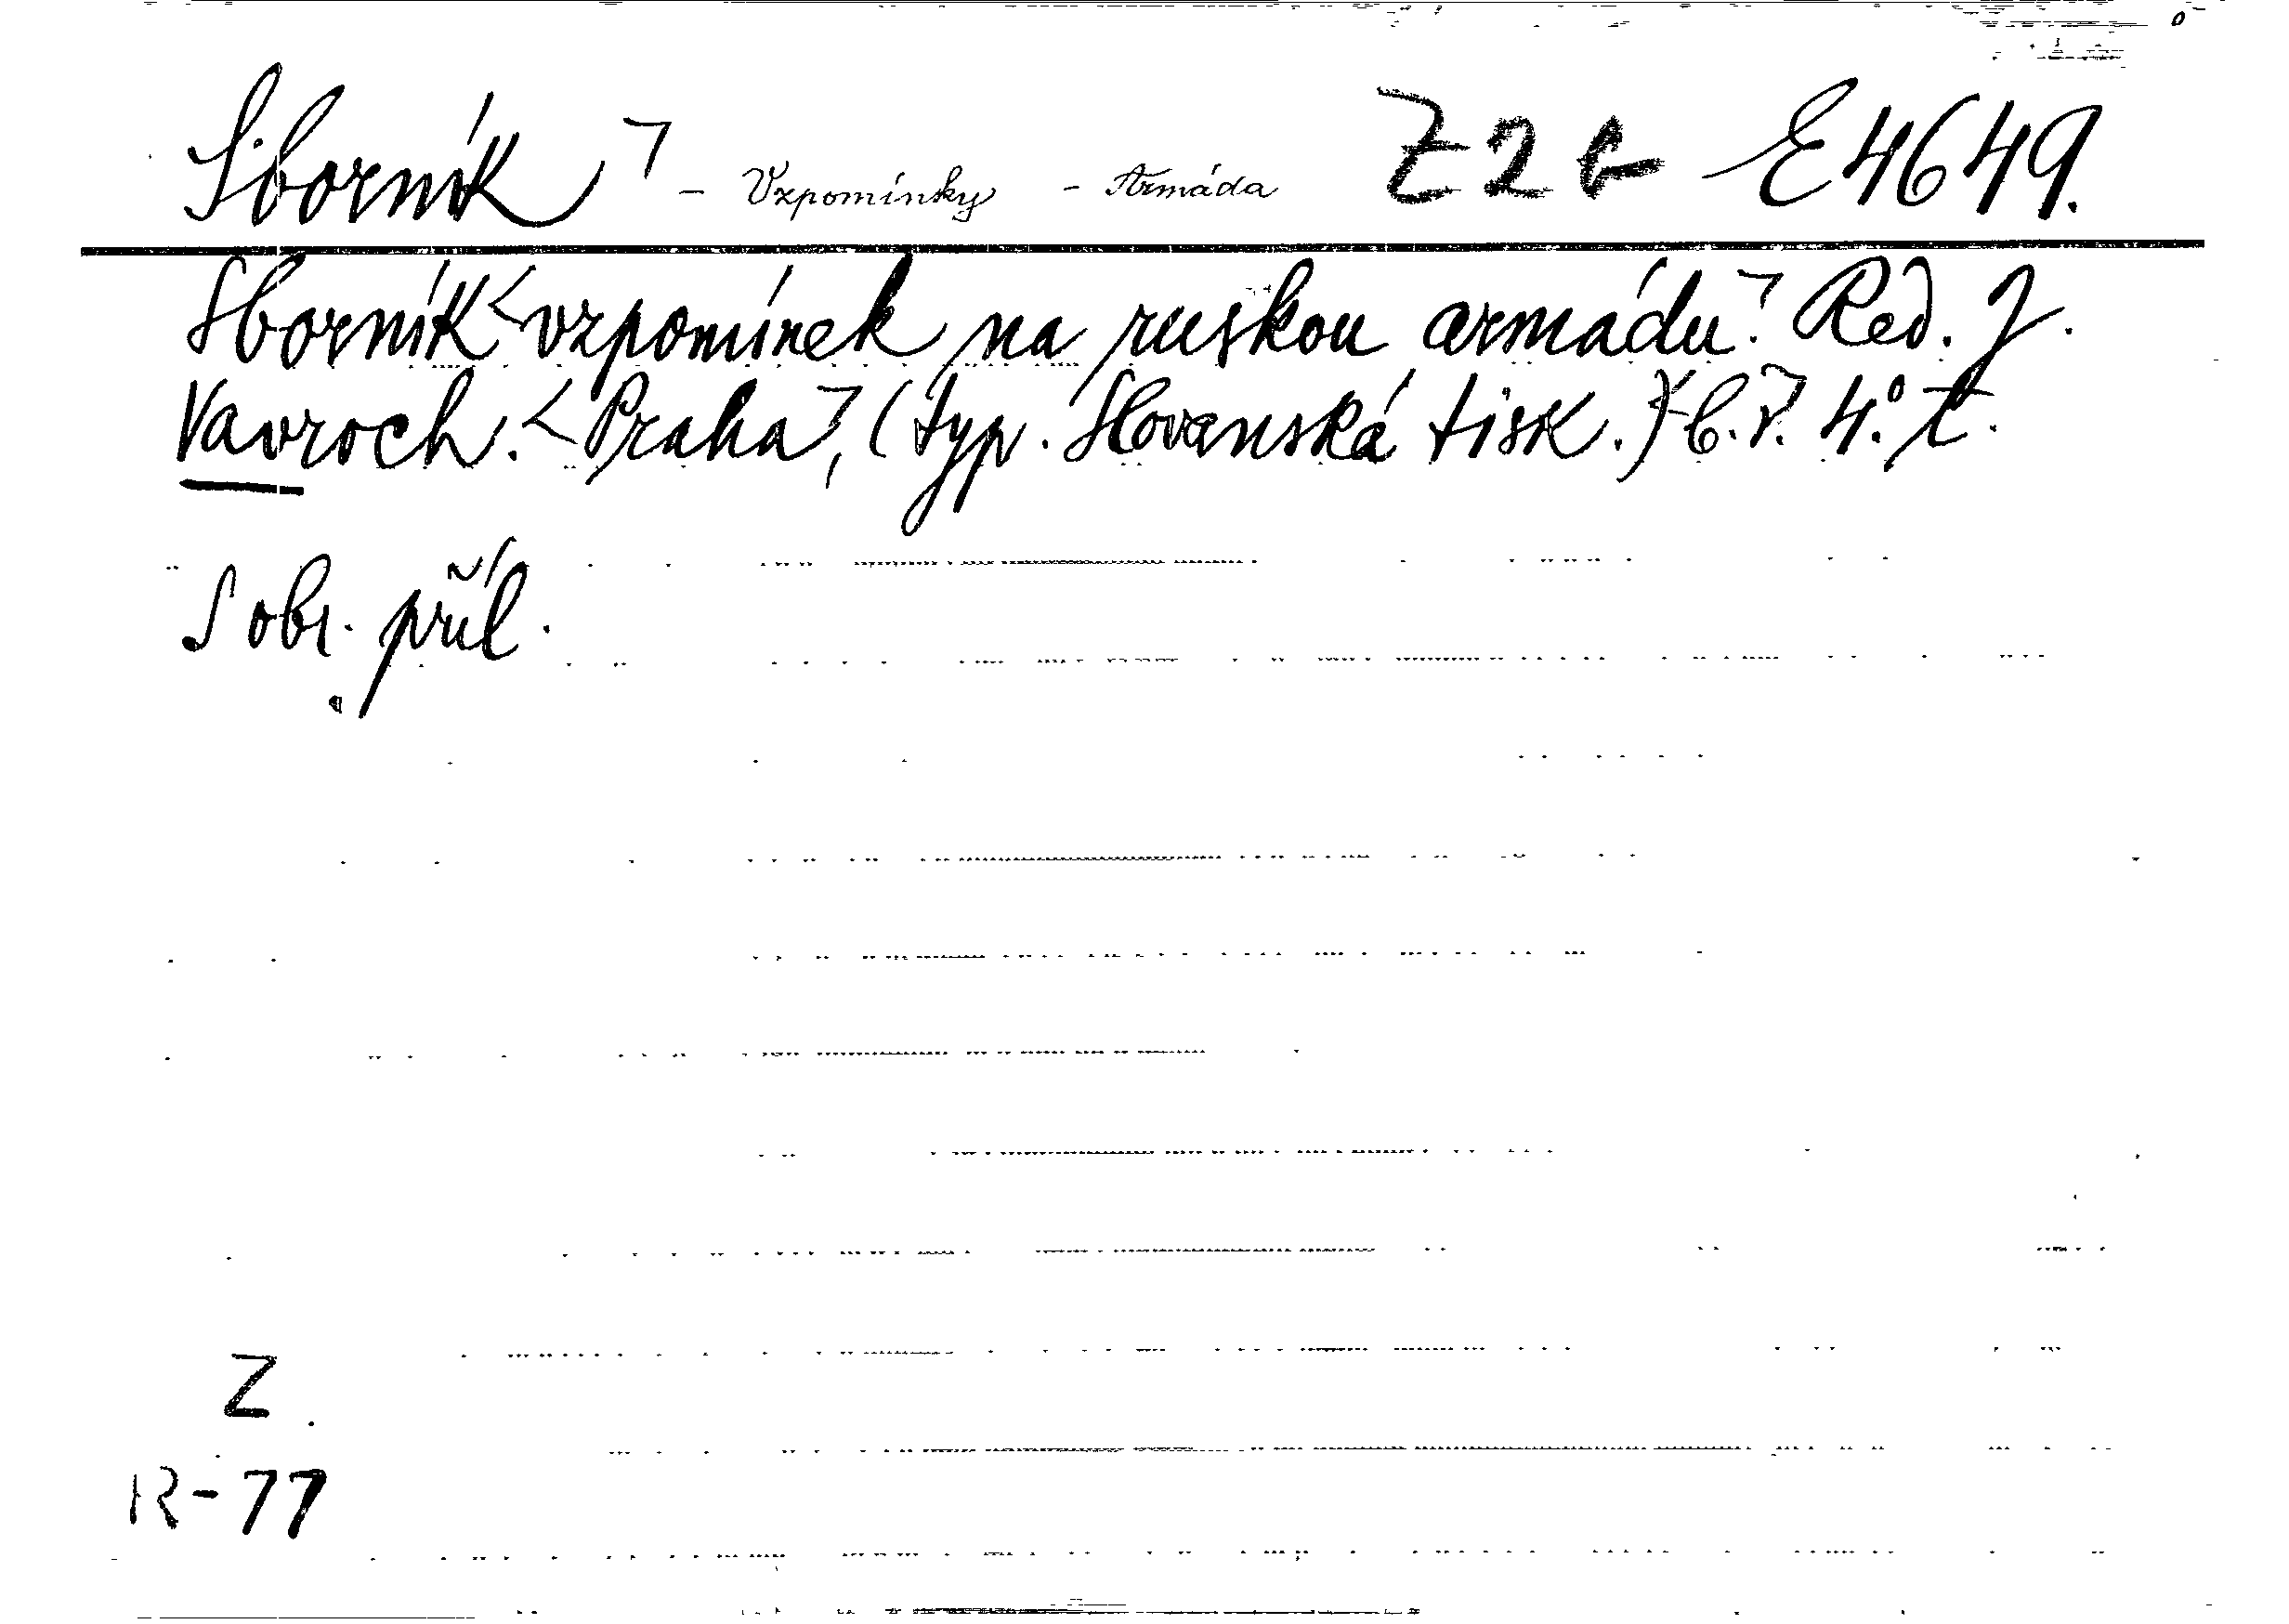 Sborník ⌝ – Vzpomínky – Armáda Z2 – E4649.
Sborník < vzpomínek na ruskou armádu.⌝ Red. J.
Vavroch. < Praha⌝, (typ. Slovanská tisk.) b. r. 4.°
S obr. příl.
Z
R-77